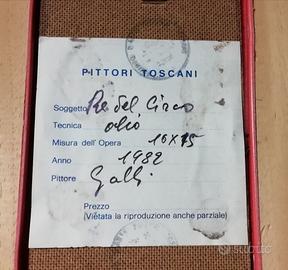 PITTORI TOSCANI
Soggetto Re del Circo
Tecnica olio
Misura dell'Opera 10X15
Anno 1982
Pittore Galli
Prezzo
(Vietata la riproduzione anche parziale)
subito